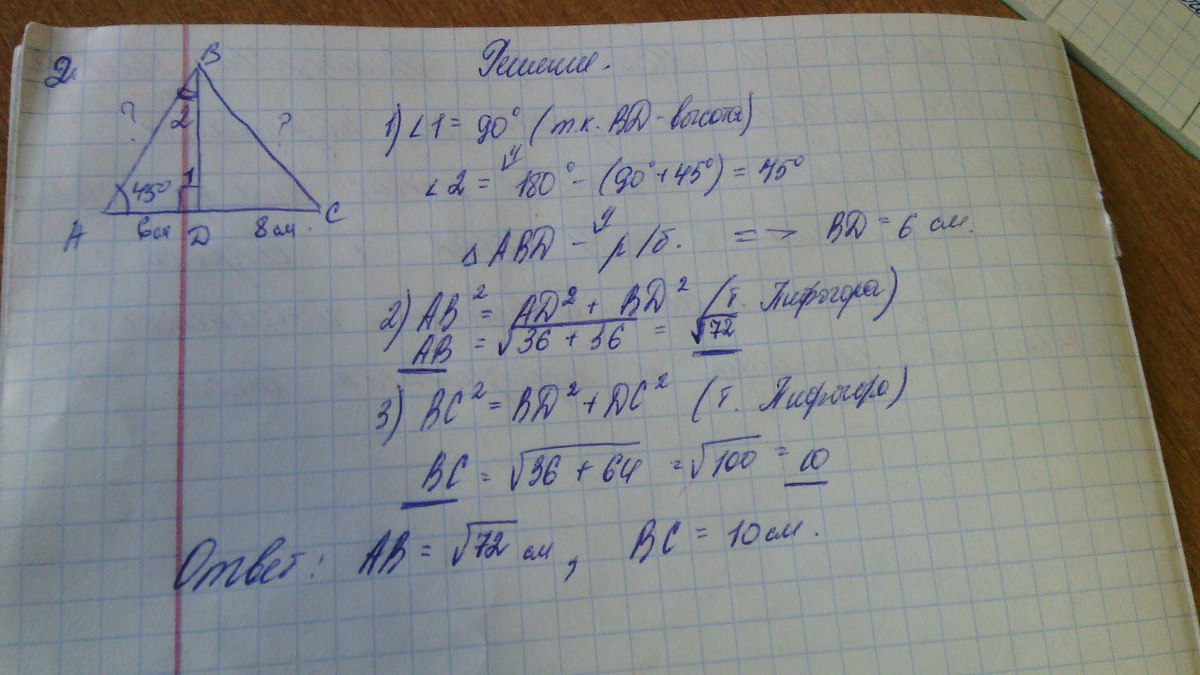 2
Решение.
B
?
2
?
1
45°
A
6см
D
8см.
C
1) ∠1 = 90° (т.к. BD - высота)
∠2 = 180° - (90° + 45°) = 45°
△ABD - р/б. => BD = 6 см.
2) AB² = AD² + BD² (т. Пифагора)
AB = √36 + 36 = √72
3) BC² = BD² + DC² (т. Пифагора)
BC = √36 + 64 = √100 = 10
Ответ: AB = √72 см, BC = 10 см.